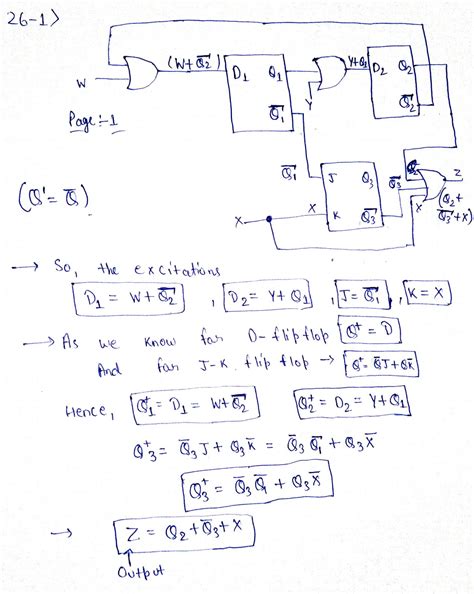 26-1>
(W+Q̅2)
D1 Q1
Q̅1
W
Y
Y+Q1
D2 Q2
Q̅2
Page:-1
(Q' = Q̅)
Q̅1
J Q3
K Q̅3
X
X
Q2
Q̅3
X
Z
(Q2+
Q̅3+X)
→ So, the excitations
D1 = W+Q̅2 , D2 = Y+Q1 , J = Q̅1 , K = X
→ As we know for D-flipflop Q⁺ = D
And for J-K flip flop → Q⁺ = Q̅J+QK̅
Hence, Q1⁺ = D1 = W+Q̅2 Q2⁺ = D2 = Y+Q1
Q⁺3 = Q̅3 J + Q3 K̅ = Q̅3 Q̅1 + Q3 X̅
Q3⁺ = Q̅3 Q̅1 + Q3 X̅
→ Z = Q2+Q̅3+X
Output